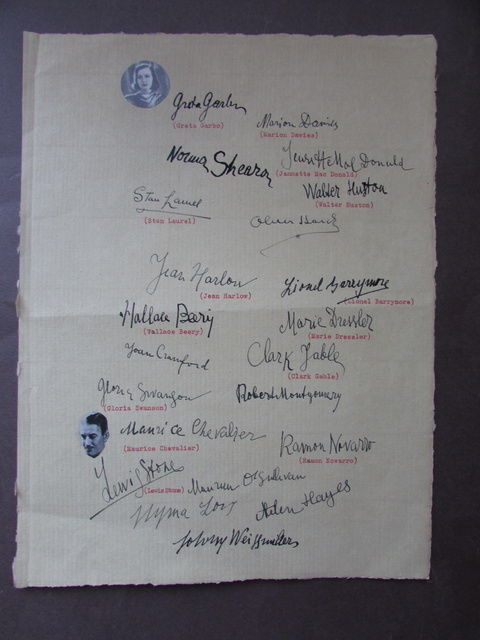 Greta Garbo
(Greta Garbo)
Marion Davies
(Marion Davies)
Norma Shearer
Jeanette Mac Donald
(Jannette Mac Donald)
Walter Huston
(Walter Huston)
Stan Laurel
(Stan Laurel)
Oliver Hardy
Jean Harlow
(Jean Harlow)
Lionel Barrymore
(Lionel Barrymore)
Wallace Beery
(Wallace Beery)
Marie Dressler
(Marie Dressler)
Joan Crawford
Clark Gable
(Clark Gable)
Gloria Swanson
(Gloria Swanson)
Robert Montgomery
Maurice Chevalier
(Maurice Chevalier)
Ramon Novarro
(Ramon Novarro)
Lewis Stone
(Lewis Stone)
Maureen O'Sullivan
Myrna Loy
Helen Hayes
Johnny Weissmuller